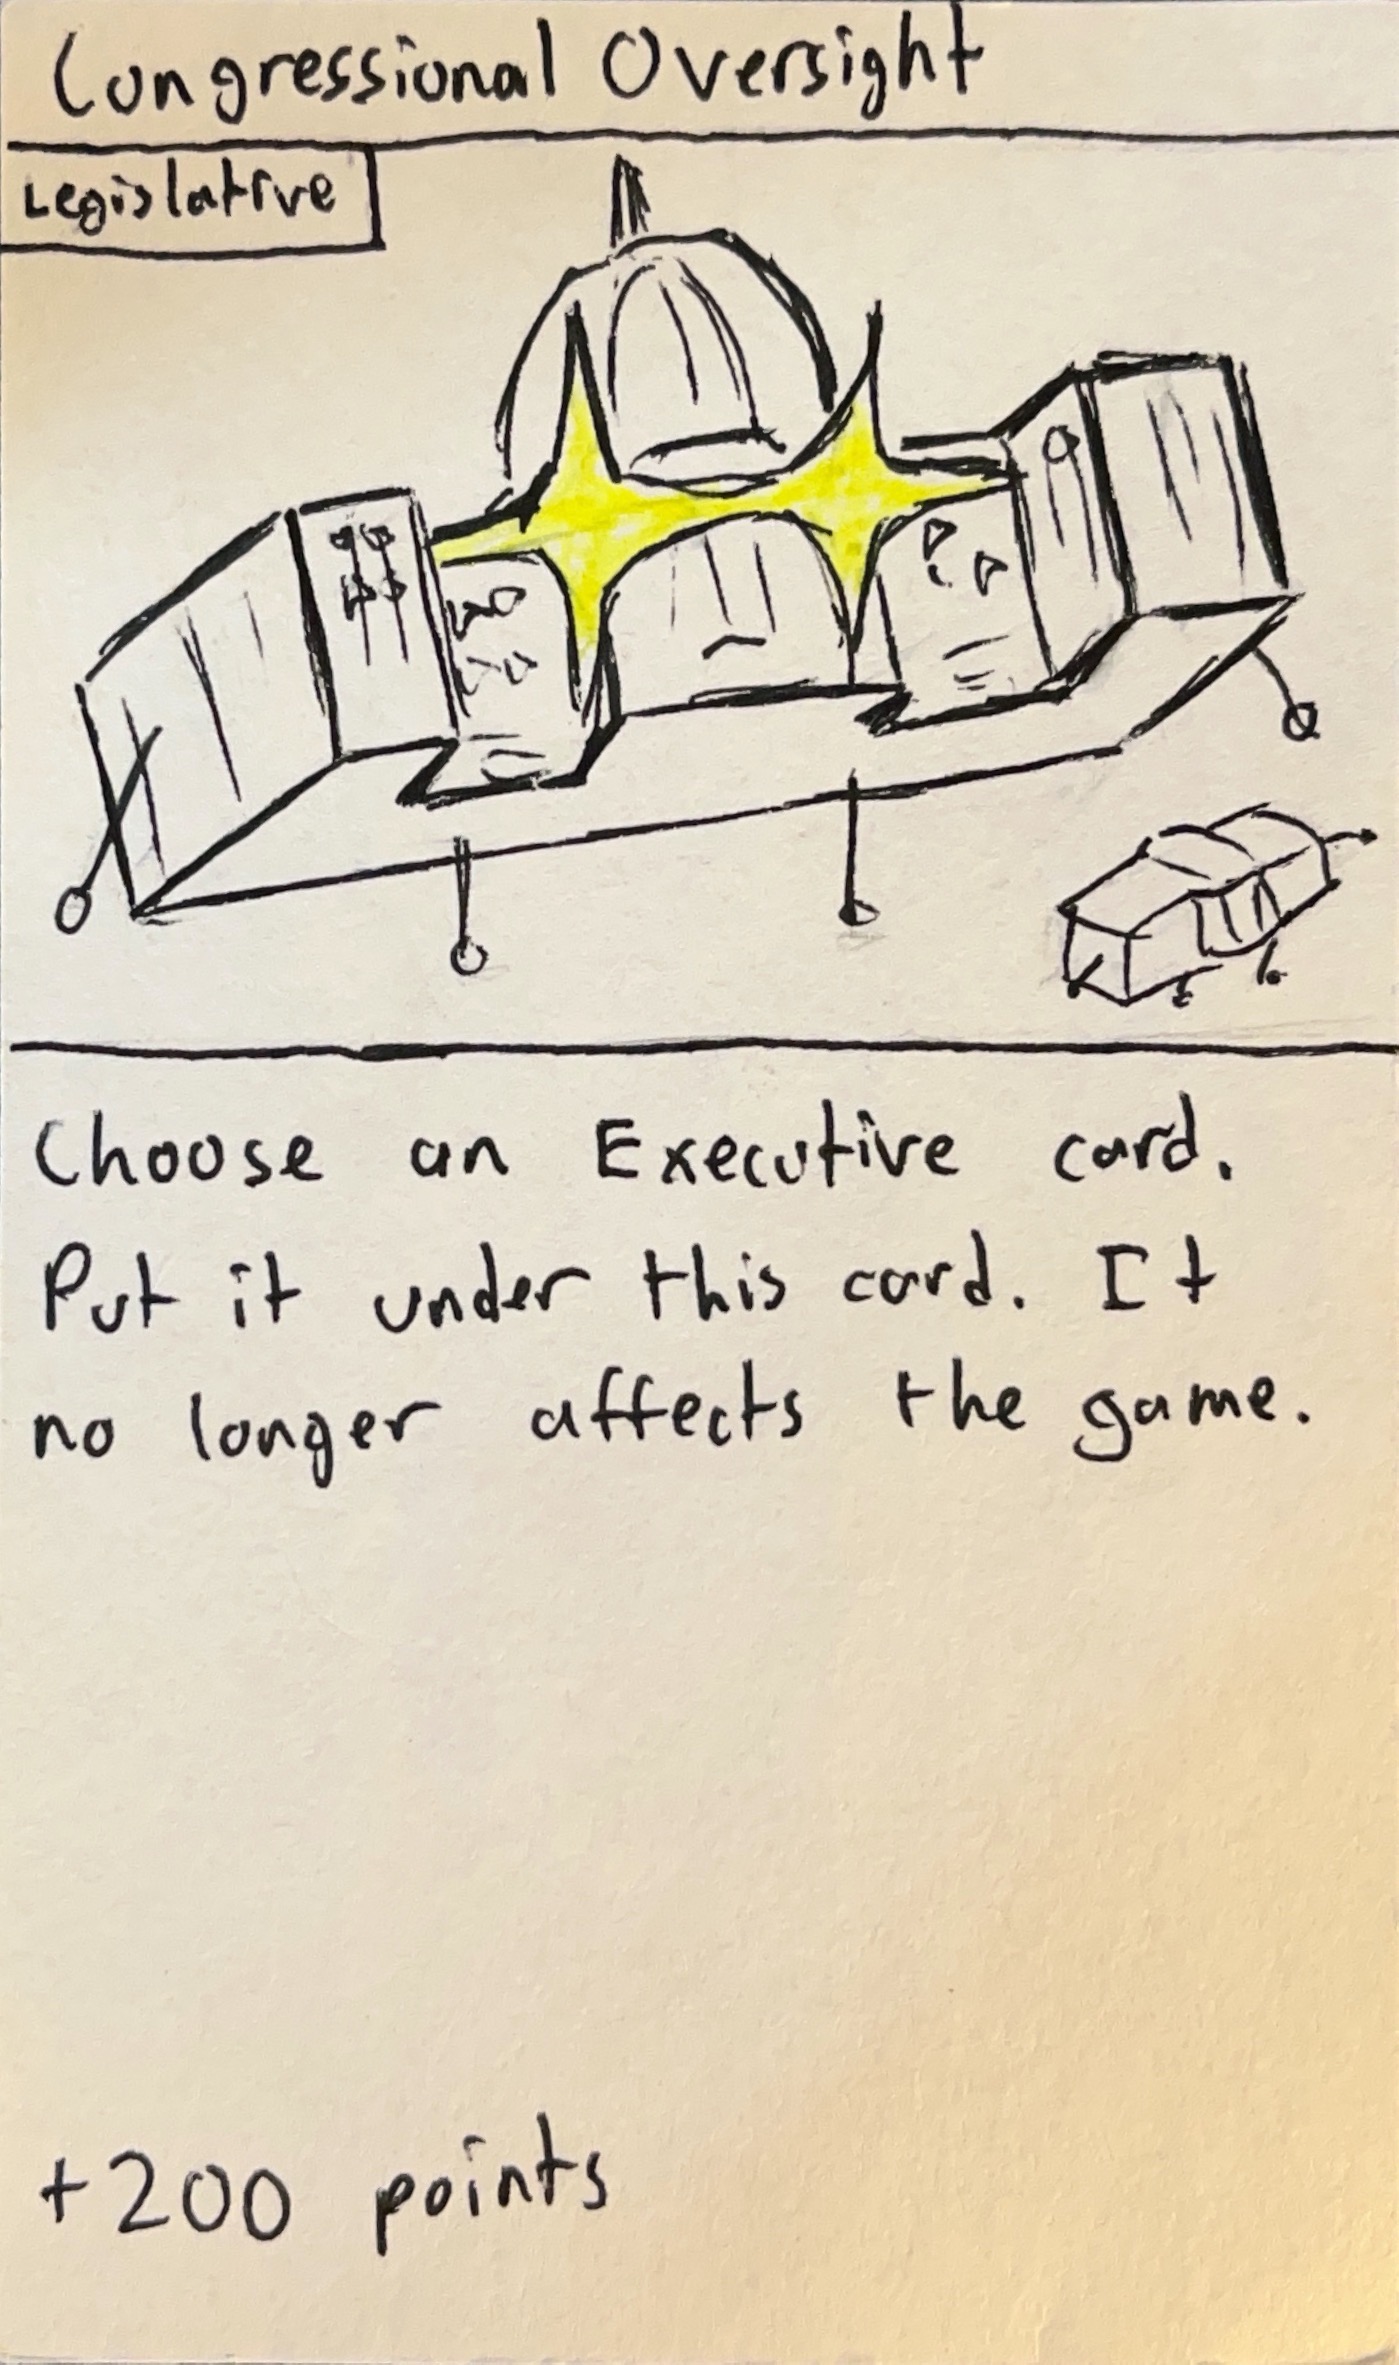 Congressional Oversight
Legislative
Choose an Executive card.
Put it under this card. It
no longer affects the game.
+200 points